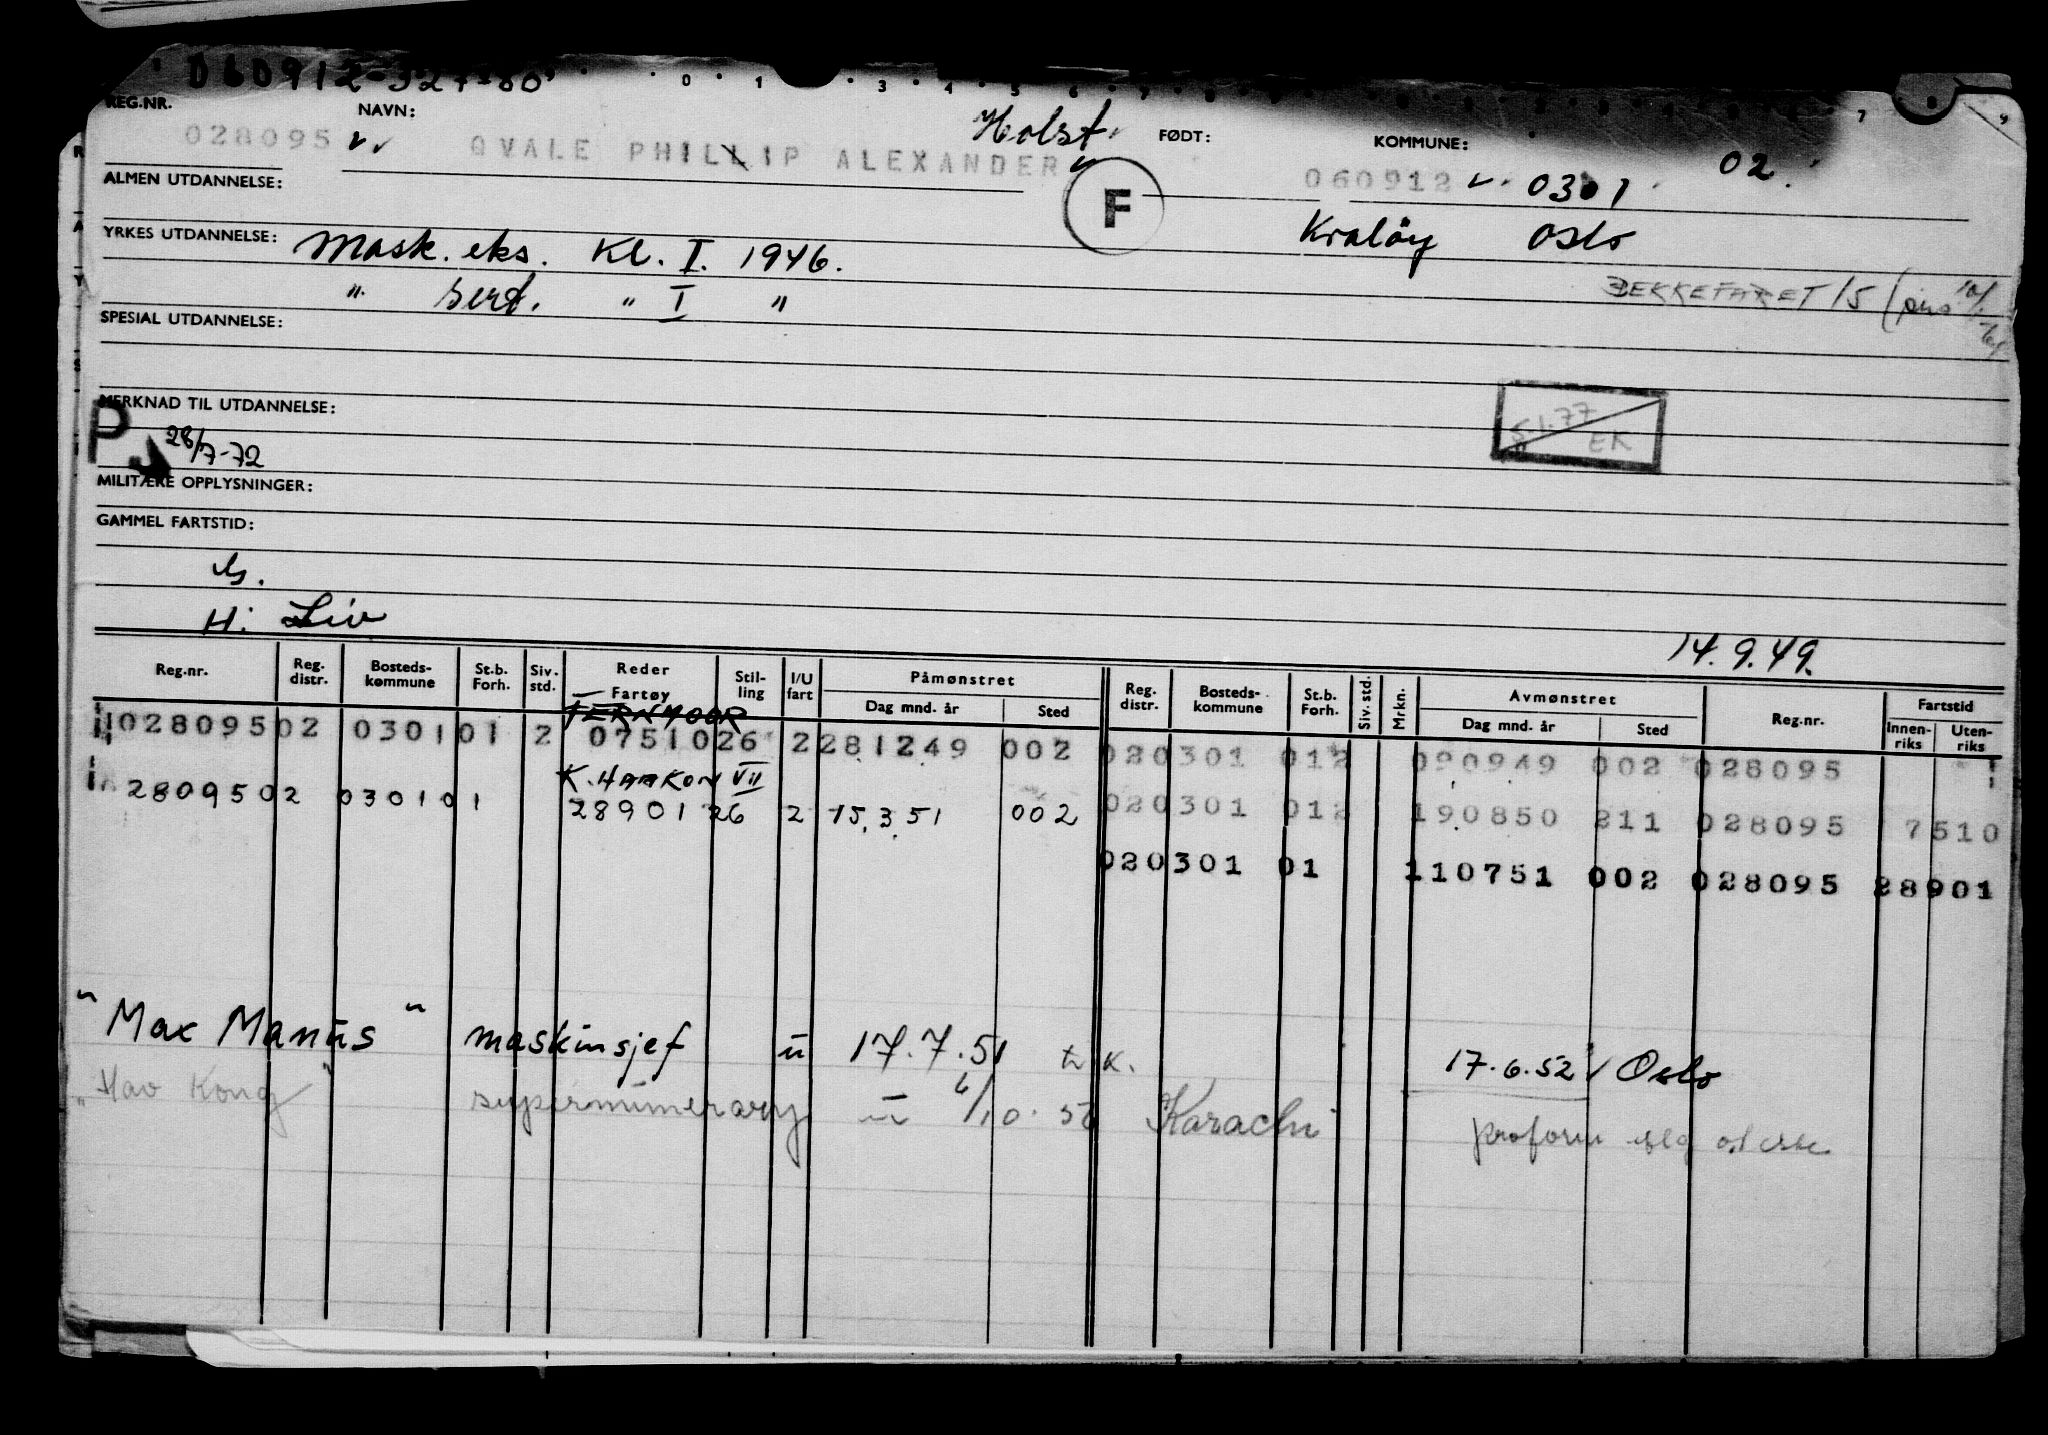 060912-
0 1 3 4 5 6 7
REG.NR. NAVN: Holst FØDT: KOMMUNE: 02
028095 QVALE PHILLIP ALEXANDER 060912 0301
ALMEN UTDANNELSE: F
YRKES UTDANNELSE: Mask. eks. Kl. I. 1946. Oslo
" sert. " I "
BEKKEFARET 15
SPESIAL UTDANNELSE:
MERKNAD TIL UTDANNELSE: 5.1.77
P 28/7-72 EK
MILITÆRE OPPLYSNINGER:
GAMMEL FARTSTID:
H: Liv
14.9.49.
Reg.nr. Reg. distr. Bosteds-kommune St.b. Forh. Siv. std. Reder Fartøy Stil-ling I/U fart Påmønstret Dag mnd. år Sted Reg. distr. Bosteds-kommune St.b. Forh. Siv. std. Mrkn. Avmønstret Dag mnd. år Sted Reg.nr. Fartstid Innen-riks Uten-riks
FERNMOOR
028095 02 0301 01 2 07510 26 2 281249 002 02 0301 01 2 090949 002 028095
K. HAAKON VII
28095 02 0301 01 28901 26 2 15.3.51 002 02 0301 01 2 190850 211 028095 7510
02 0301 01 110751 002 028095 28901
"Max Manus" maskinsjef u 17.7.51 t.k. 17.6.52 Oslo
"Hav Kong" supernumerary u 6/10. Karachi proform